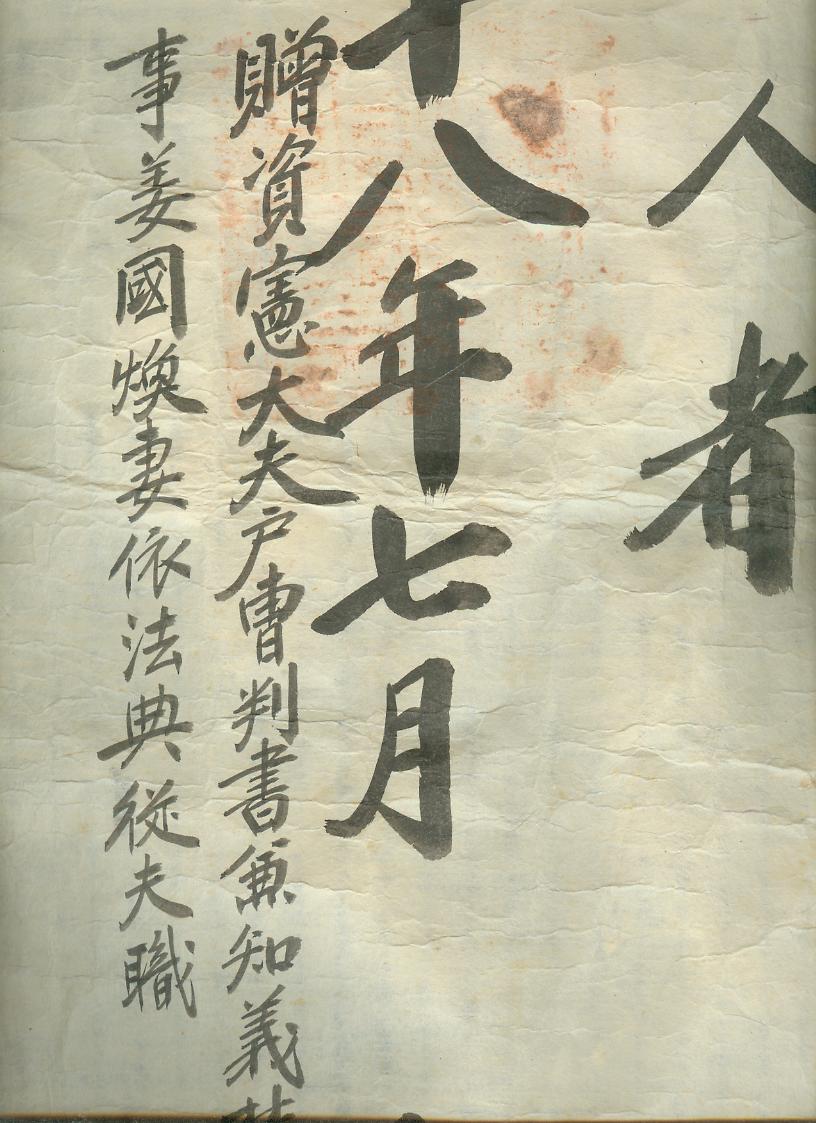 人者
十八年七月
贈資憲大夫戶曺判書兼知義
事姜國煥妻依法典從夫職